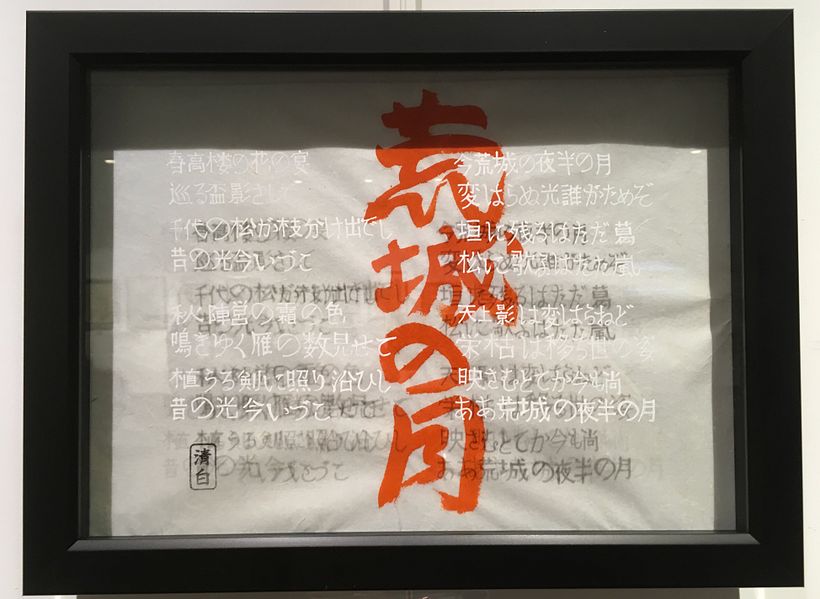 荒城の月
春高楼の花の宴
巡る盃影さして
千代の松が枝分け出でし
昔の光今いづこ
秋陣営の霜の色
鳴きゆく雁の数見せて
植うる剣に照り沿ひし
昔の光今いづこ
今荒城の夜半の月
変はらぬ光誰がためぞ
垣に残るはただ葛
松に歌ふはただ嵐
天上影は変はらねど
栄枯は移る世の姿
映さむとてか今も尚
ああ荒城の夜半の月
清白